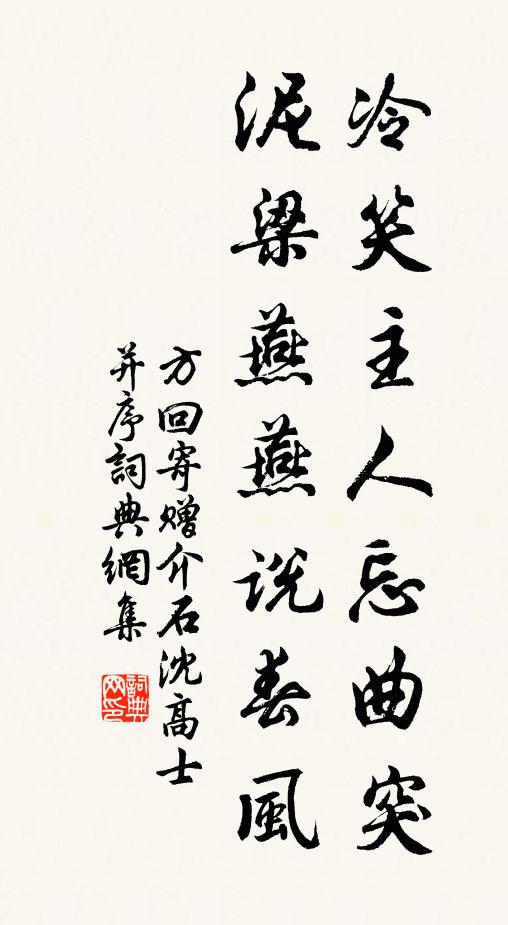 冷笑主人忘曲突
泥梁燕燕説春風
方回寄贈介石沈高士
并序詞典網集
詞典网印